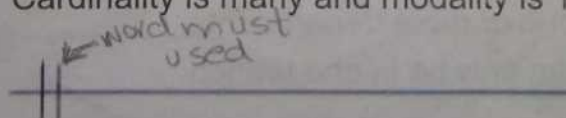 Cardinality is many and modality is
word must
used